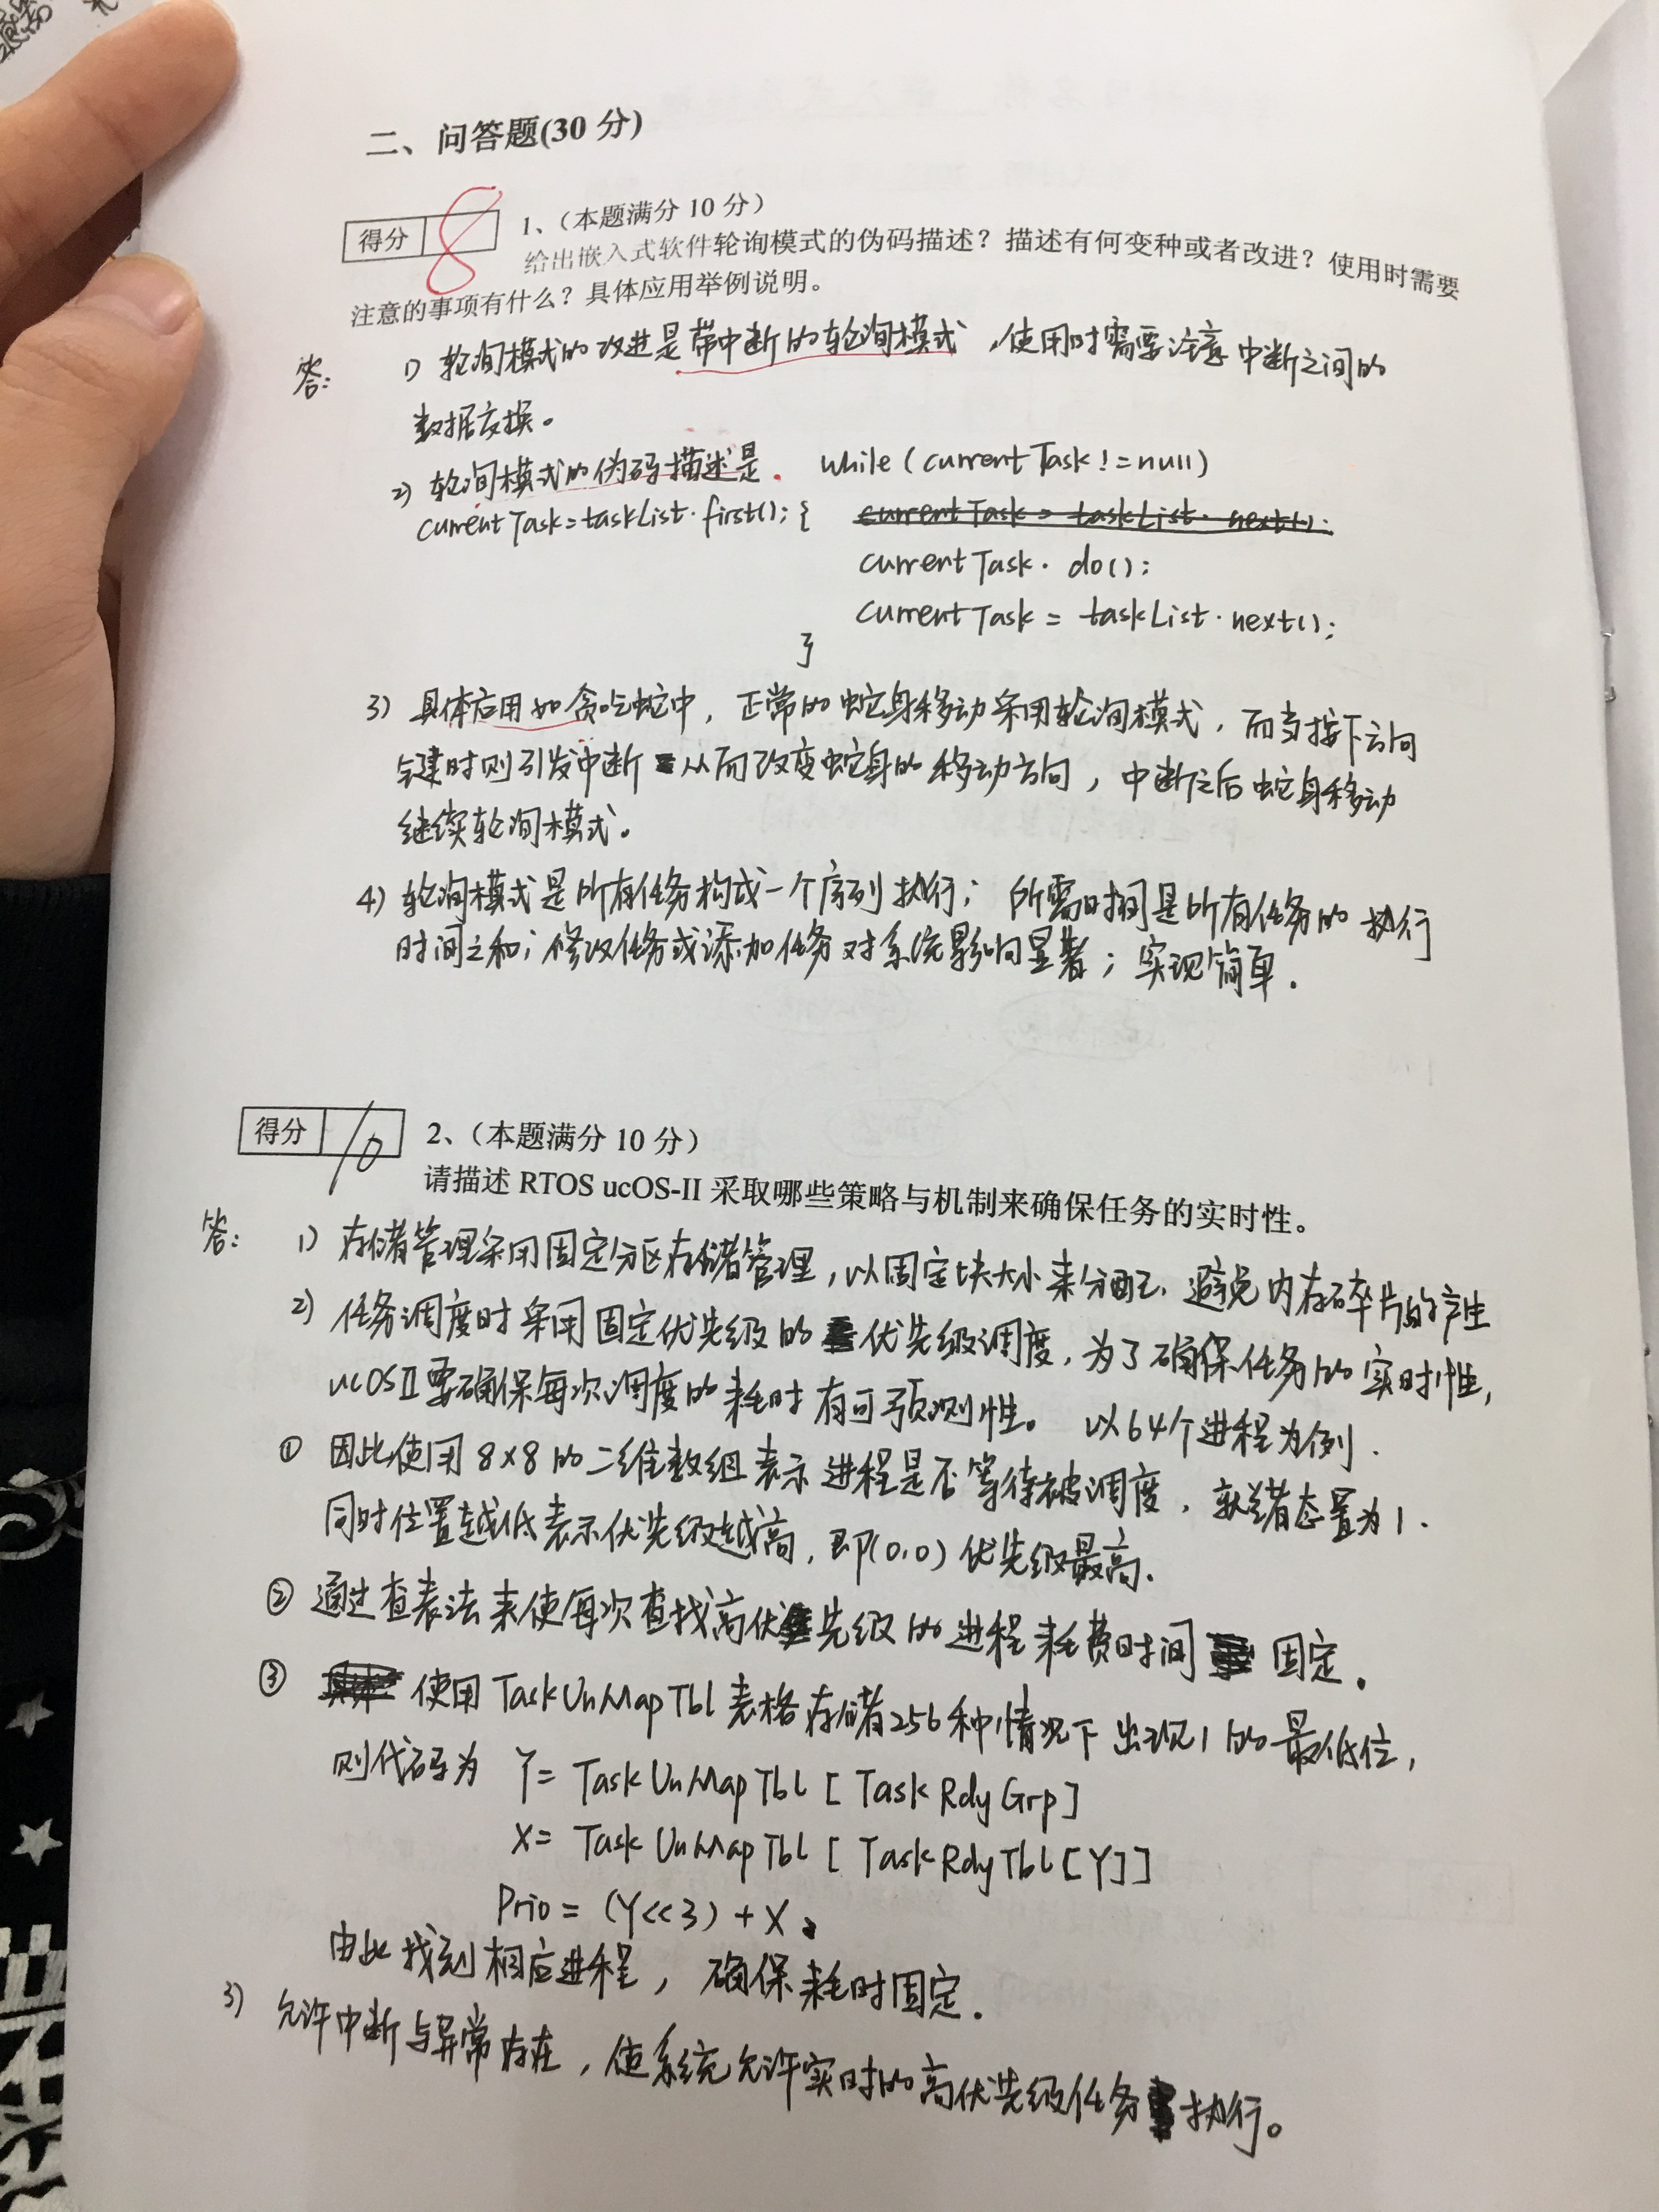 二、问答题(30 分)
得分 8 1、（本题满分 10 分）
给出嵌入式软件轮询模式的伪码描述？描述有何变种或者改进？使用时需要
注意的事项有什么？具体应用举例说明。
答： 1) 轮询模式的改进是带中断的轮询模式，使用时需要注意中断之间的
数据交换。
2) 轮询模式的伪码描述是. while (currentTask!=null)
currentTask=taskList.first(); { currentTask = taskList.next();
currentTask. do();
currentTask = taskList.next();
}
3) 具体应用如贪吃蛇中，正常的蛇身移动采用轮询模式，而当按下方向
键时则引发中断从而改变蛇身的移动方向，中断之后蛇身移动
继续轮询模式。
4) 轮询模式是所有任务构成一个序列执行；所需时间是所有任务的执行
时间之和；修改任务或添加任务对系统影响显著；实现简单.
得分 10 2、（本题满分 10 分）
请描述 RTOS ucOS-II 采取哪些策略与机制来确保任务的实时性。
答： 1) 存储管理采用固定分区存储管理，以固定块大小来分配，避免内存碎片的产生
2) 任务调度时采用固定优先级的优先级调度，为了确保任务的实时性，
ucOSII要确保每次调度的耗时有可预测性。 以64个进程为例.
① 因此使用8×8的二维数组表示进程是否等待被调度，就绪态置为1.
同时位置越低表示优先级越高，即(0,0)优先级最高.
② 通过查表法来使每次查找高优先级的进程耗费时间固定.
③ 使用TaskUnMapTbl表格存储256种情况下出现1的最低位，
则代码为 Y= TaskUnMapTbl [ TaskRdyGrp]
X= TaskUnMapTbl [ TaskRdyTbl[Y]]
Prio = (Y<<3) + X。
由此找到相应进程，确保耗时固定.
3) 允许中断与异常存在，使系统允许实时的高优先级任务执行。